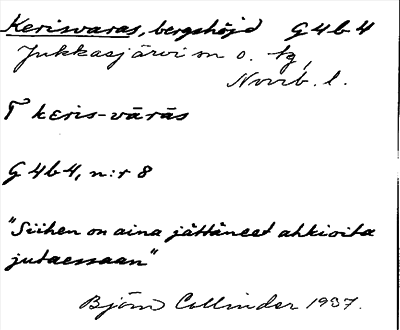 Kerisvaras, bergshöjd G4b4
Jukkasjärvi sn o. tg,
Norrb. l.
T keris-vàràs
G4b4, n:r 8
"Siihen on aina jättäneet ahkioita
jutaessaan"
Björn Collinder 1937.